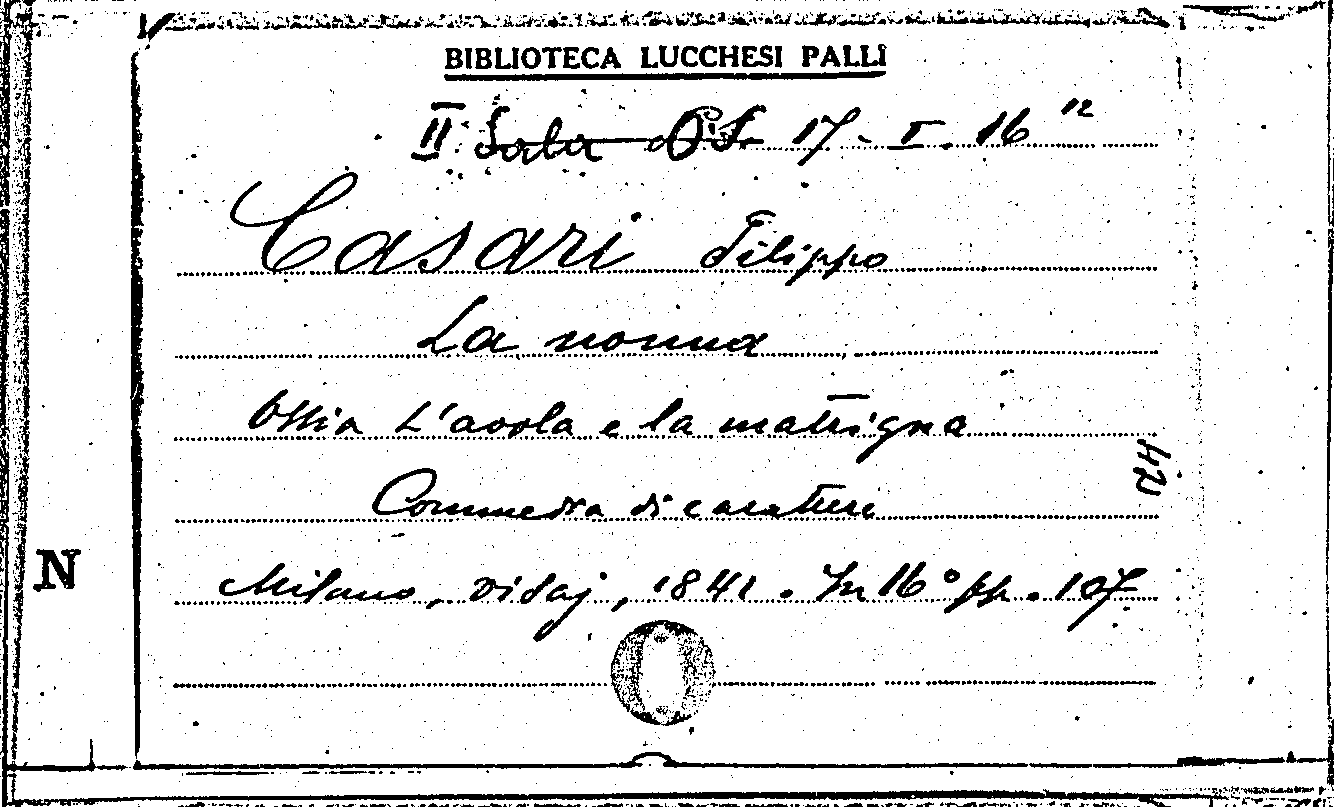 BIBLIOTECA LUCCHESI PALLI
II Sala 17 - I. 16 12
Casari Filippo
La nonna
Ossia L'avola e la matrigna
42
Commedia di carattere
N
Milano, Visaj, 1841. In 16° pp. 107